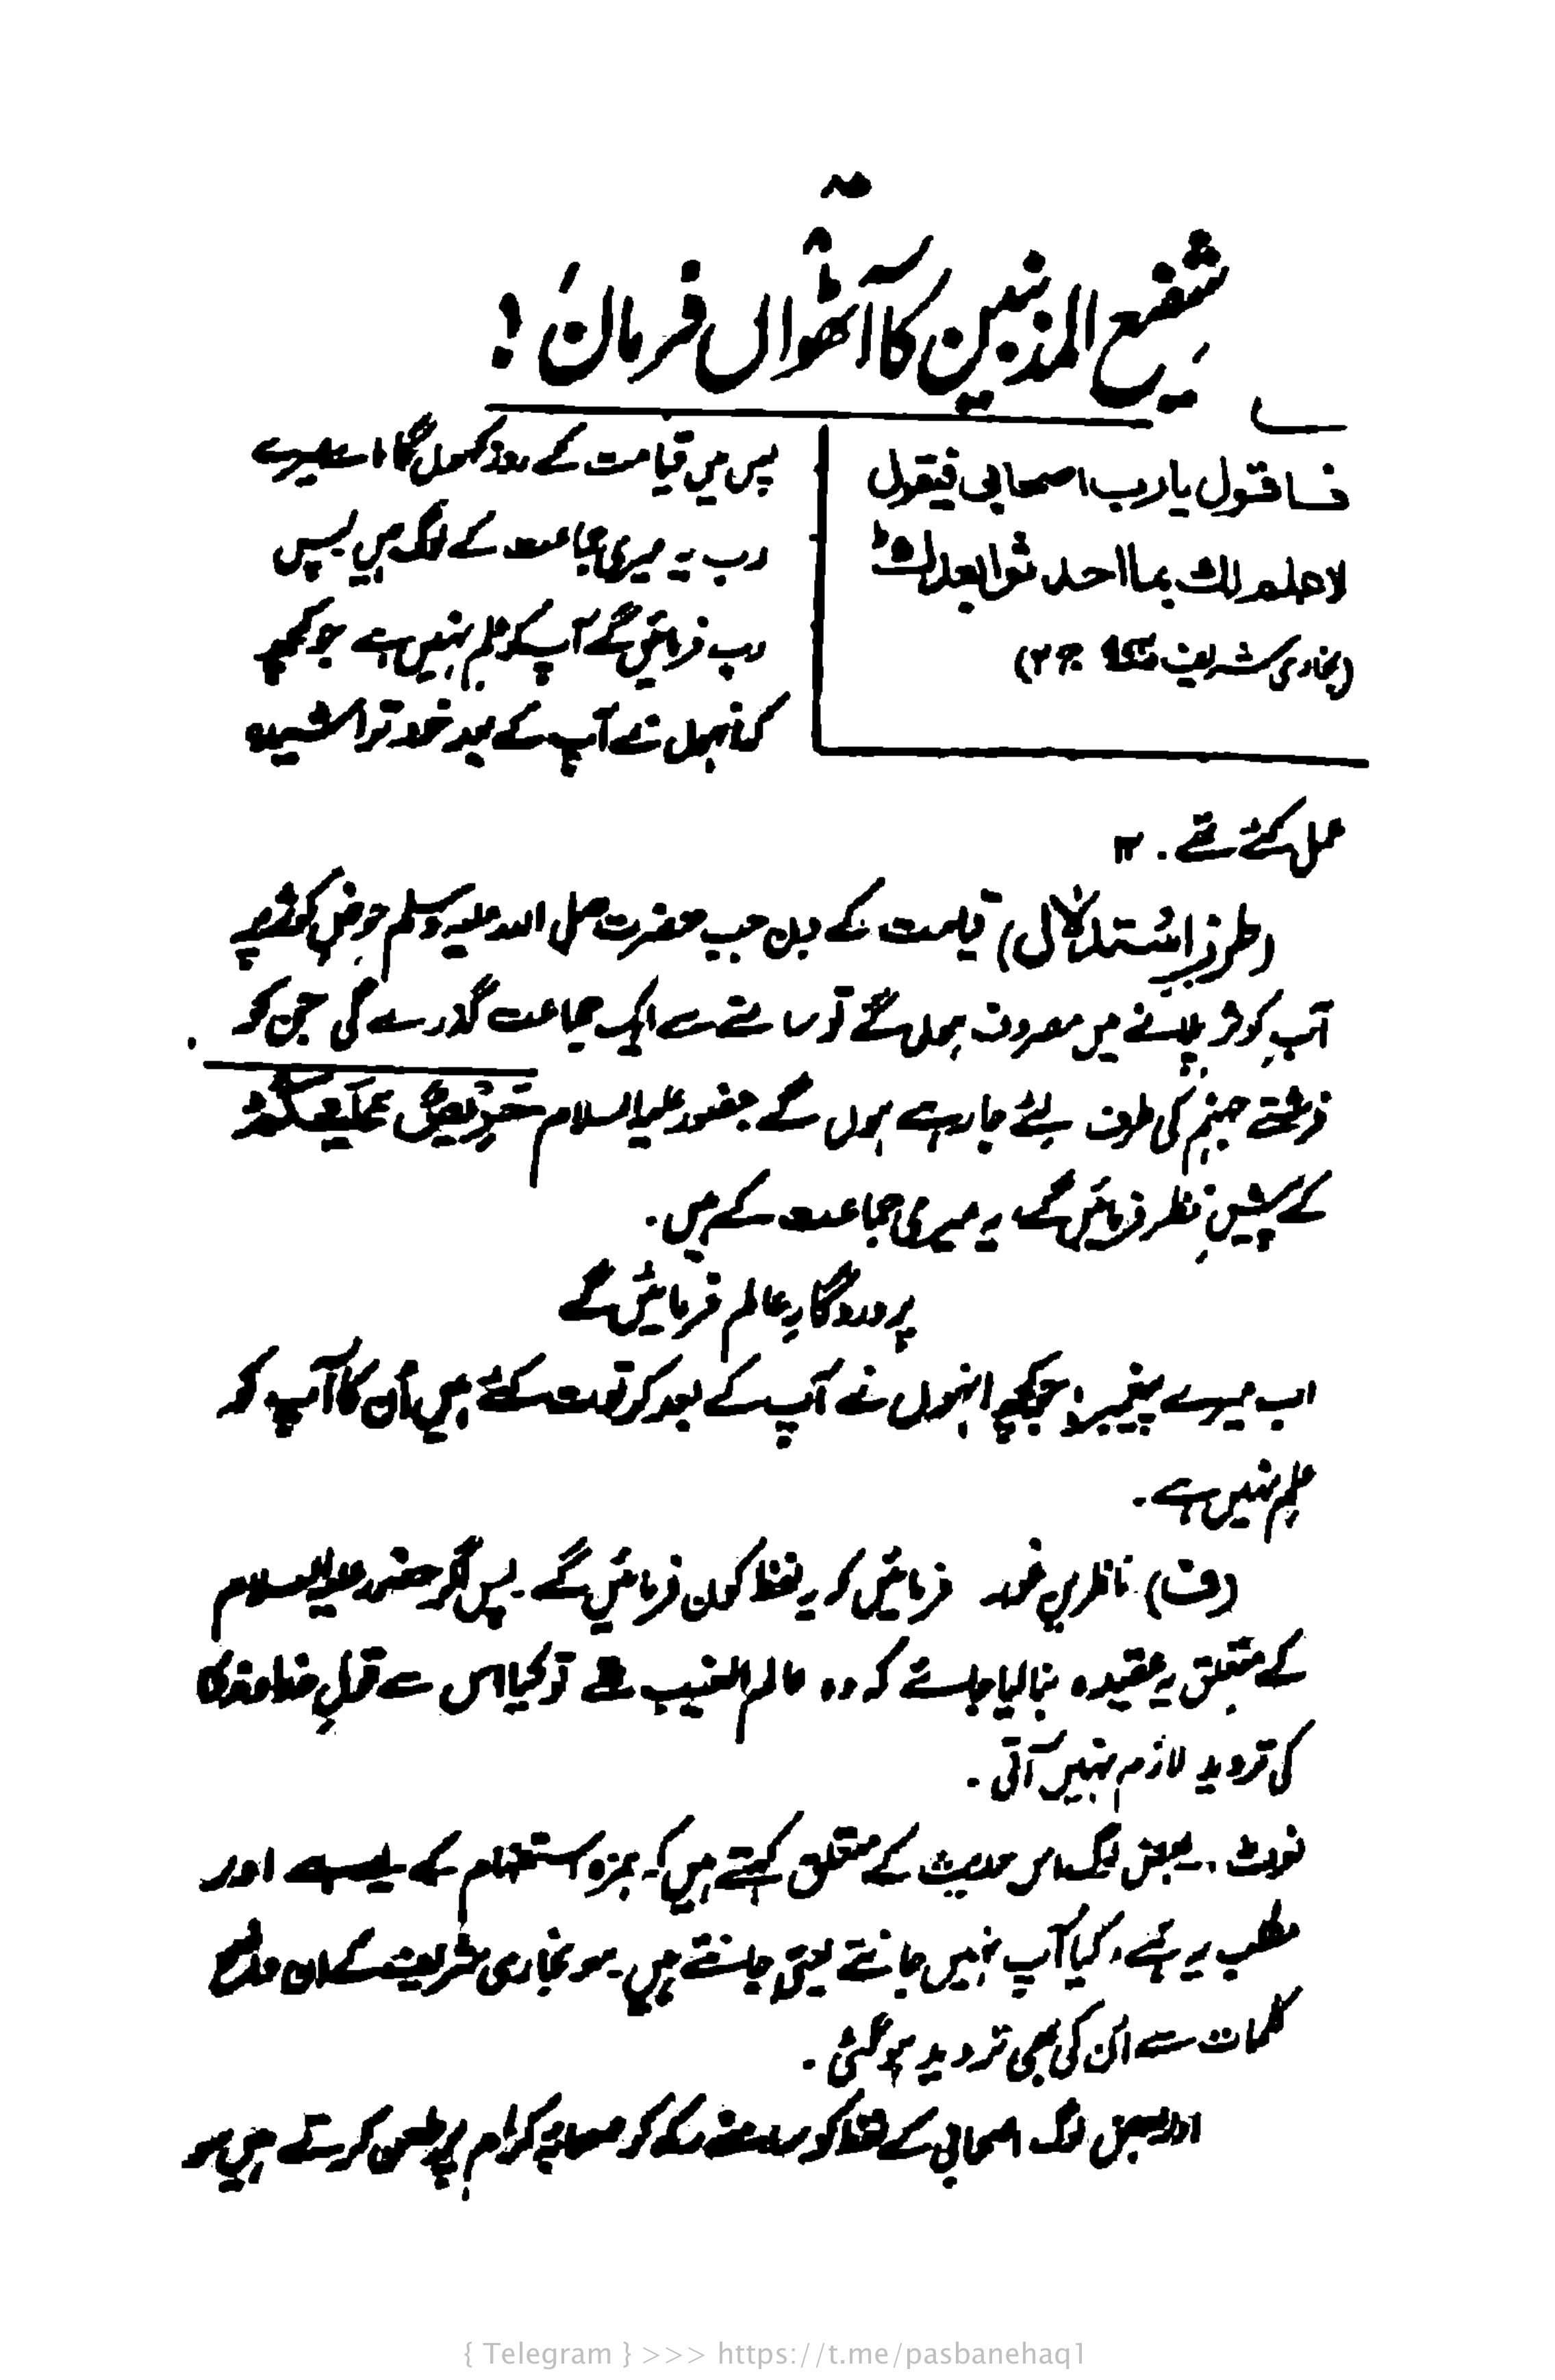 شفیع المذنبین کا آٹھواں فرمان!
فاقول یا رب اصحابی فیقول
لا علم لك بما احدثوا بعدك
(بخاری شریف
پس میں قیامت کے روز کہوں گا اے میرے
رب یہ میری جماعت کے لوگ ہیں پس
رب فرمائیں گے آپ کو علم نہیں ہے جو کچھ
کہ انہوں نے آپ کے بعد خود تراشیدہ
عمل کئے تھے۔ ۱۲
(طرز استدلال) قیامت کے دن جب حضرت صلی اللہ علیہ وسلم حوض کوثر پہ
آب کوثر پلانے میں مصروف ہوں گے تو سامنے سے ایک جماعت گذرے گی جن کو
فرشتے جہنم کی طرف لئے جا رہے ہوں گے حضور علیہ السلام حَرِیْصٌ عَلَیْکُمْ
کے پیش نظر فرمائیں گے یہ میری جماعت کے ہیں۔
پروردگارِ عالم فرمائیں گے
اب میرے پیغمبر! جو کچھ انہوں نے آپ کے بعد کرتوت کئے ہیں اُن کا آپ کو
علم نہیں ہے۔
(ف) ناظرین خود فرمائیں کہ یہ لفظ کون فرمائیں گے۔ پس اگر حضور علیہ السلام
کے متعلق یہ عقیدہ بنا لیا جائے کہ وہ عالم الغیب تھے تو کیا اس سے قولِ خداوندی
کی تردید لازم نہیں آتی۔
نوٹ:۔ بعض لوگ اس حدیث کے متعلق کہتے ہیں کہ ہمزہ استفہام کے لیے ہے اور
مطلب یہ ہے، کیا آپ نہیں جانتے یعنی جانتے ہیں۔ سو بخاری شریف کے ان
کلمات سے ان کی بھی تردید ہو گئی۔
اور بعض لوگ اصحابی کے لفظ کو سامنے رکھ کر صحابہ کرام پر طعن کرتے ہیں سو
{ Telegram } >>> https://t.me/pasbanehaq1